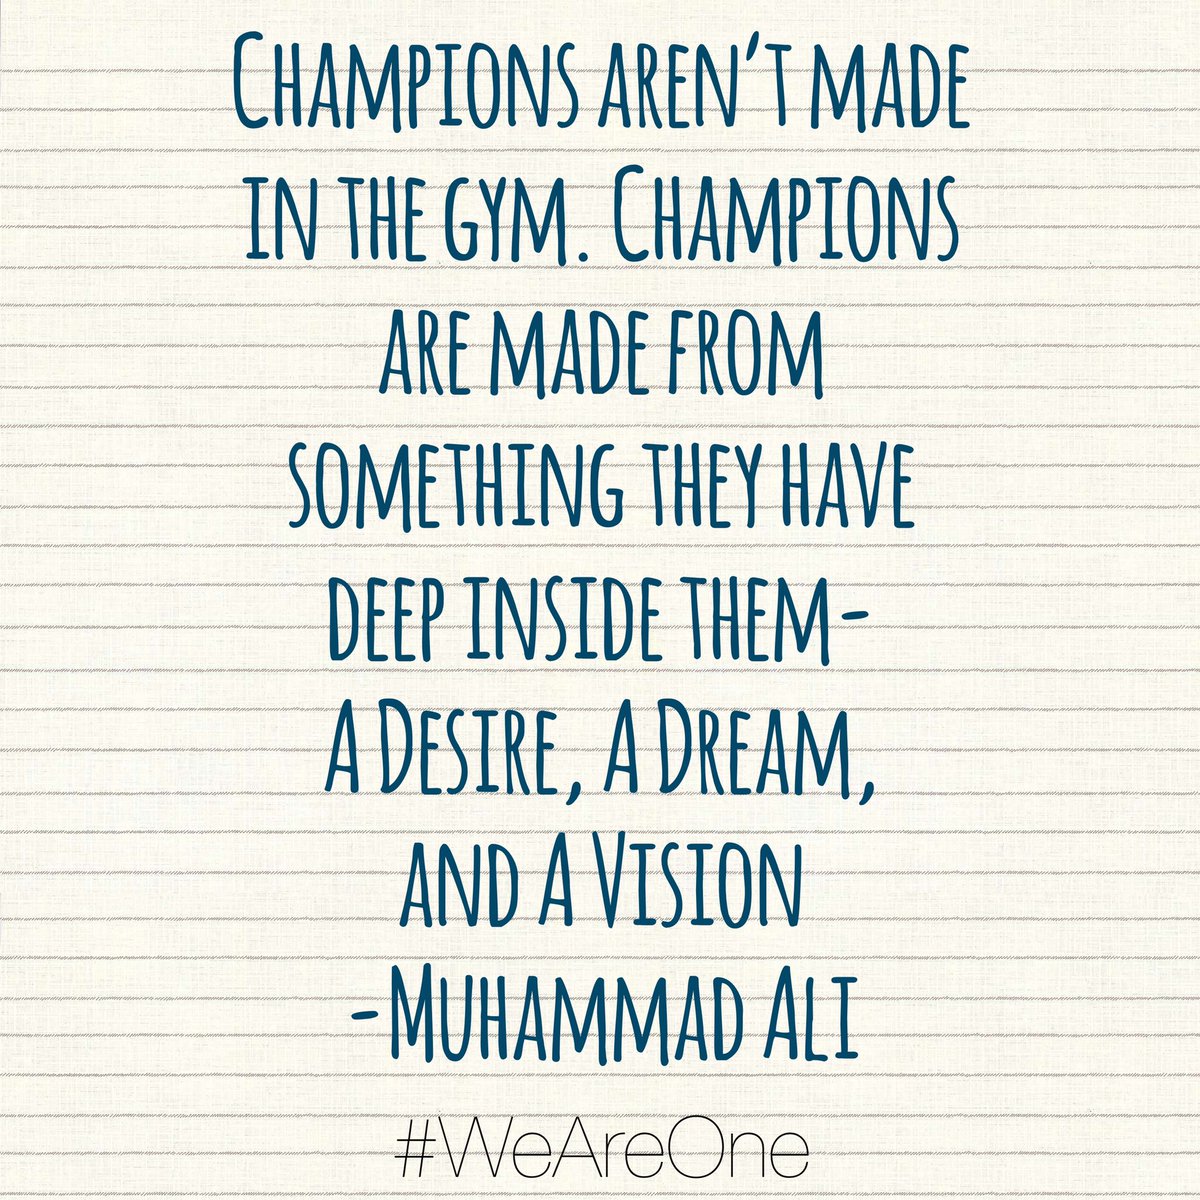 Champions aren't made
in the gym. Champions
are made from
something they have
deep inside them-
A Desire, A Dream,
and A Vision
-Muhammad Ali
#WeAreOne